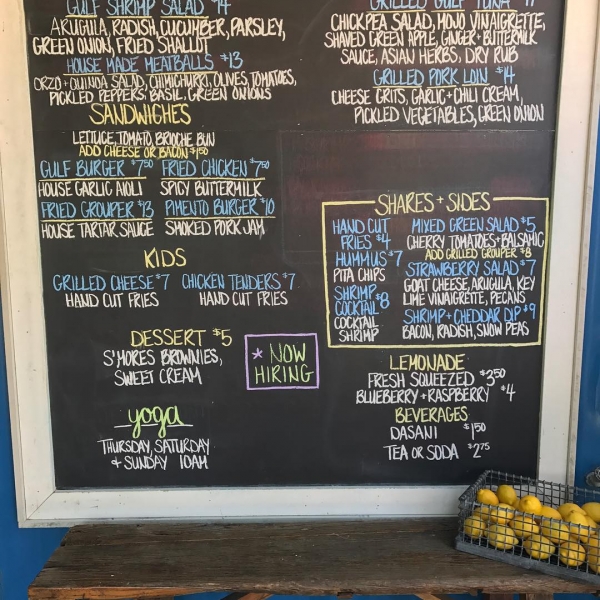 GULF SHRIMP SALAD $14
ARUGULA, RADISH, CUCUMBER, PARSLEY,
GREEN ONION, FRIED SHALLOT
HOUSE MADE MEATBALLS $13
ORZO + QUINOA SALAD, CHIMICHURRI, OLIVES, TOMATOES,
PICKLED PEPPERS, BASIL, GREEN ONIONS
SANDWICHES
LETTUCE, TOMATO, BRIOCHE BUN
ADD CHEESE OR BACON $1.50
GULF BURGER $7.50
HOUSE GARLIC AIOLI
FRIED CHICKEN $7.50
SPICY BUTTERMILK
FRIED GROUPER $13
HOUSE TARTAR SAUCE
PIMENTO BURGER $10
SMOKED PORK JAM
KIDS
GRILLED CHEESE $7
HAND CUT FRIES
CHICKEN TENDERS $7
HAND CUT FRIES
DESSERT $5
S'MORES BROWNIES,
SWEET CREAM
* NOW
HIRING
yoga
THURSDAY, SATURDAY
+ SUNDAY 10AM
GRILLED GULF TUNA
CHICKPEA SALAD, MOJO VINAIGRETTE,
SHAVED GREEN APPLE, GINGER + BUTTERMILK
SAUCE, ASIAN HERBS, DRY RUB
GRILLED PORK LOIN $14
CHEESE GRITS, GARLIC + CHILI CREAM,
PICKLED VEGETABLES, GREEN ONION
SHARES + SIDES
HAND CUT
FRIES $4
HUMMUS $7
PITA CHIPS
SHRIMP
COCKTAIL $8
COCKTAIL
SHRIMP
MIXED GREEN SALAD $5
CHERRY TOMATOES + BALSAMIC
ADD GRILLED GROUPER $8
STRAWBERRY SALAD $7
GOAT CHEESE, ARUGULA, KEY
LIME VINAIGRETTE, PECANS
SHRIMP + CHEDDAR DIP $9
BACON, RADISH, SNOW PEAS
LEMONADE
FRESH SQUEEZED $3.50
BLUEBERRY + RASPBERRY $4
BEVERAGES
DASANI $1.50
TEA OR SODA $2.75